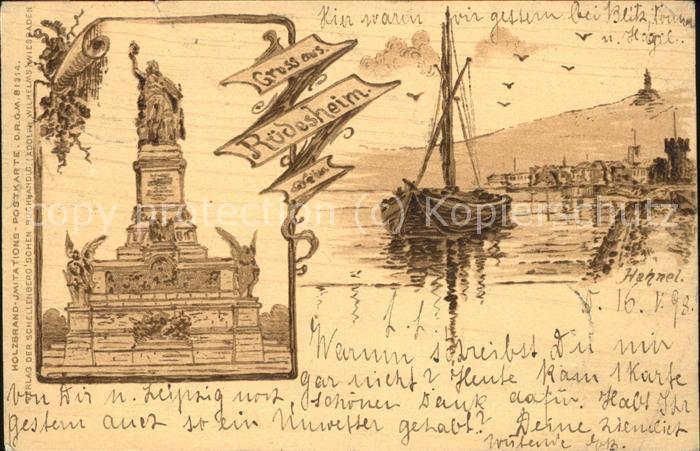 HOLZBRAND-IMITATIONS-POSTKARTE. D.R.G.M. 81314.
VERLAG DER SCHELLENBERG'SCHEN BUCHHANDLG. (ADOLF WILHELMS) WIESBADEN
Hier waren wir gestern bei Blitz, Donner
u. Hagel.
Gruss aus
Rüdesheim
copy protection (c) Kopierschutz
Hehnel.
16. V. 98.
L. L.
Warum schreibst Du mir
gar nicht? Heute kam 1 Karte
von Dir n. Leipzig noch, schönen Dank dafür. Habt Ihr
gestern auch so ein Unwetter gehabt? Deine ziemlich
wütende